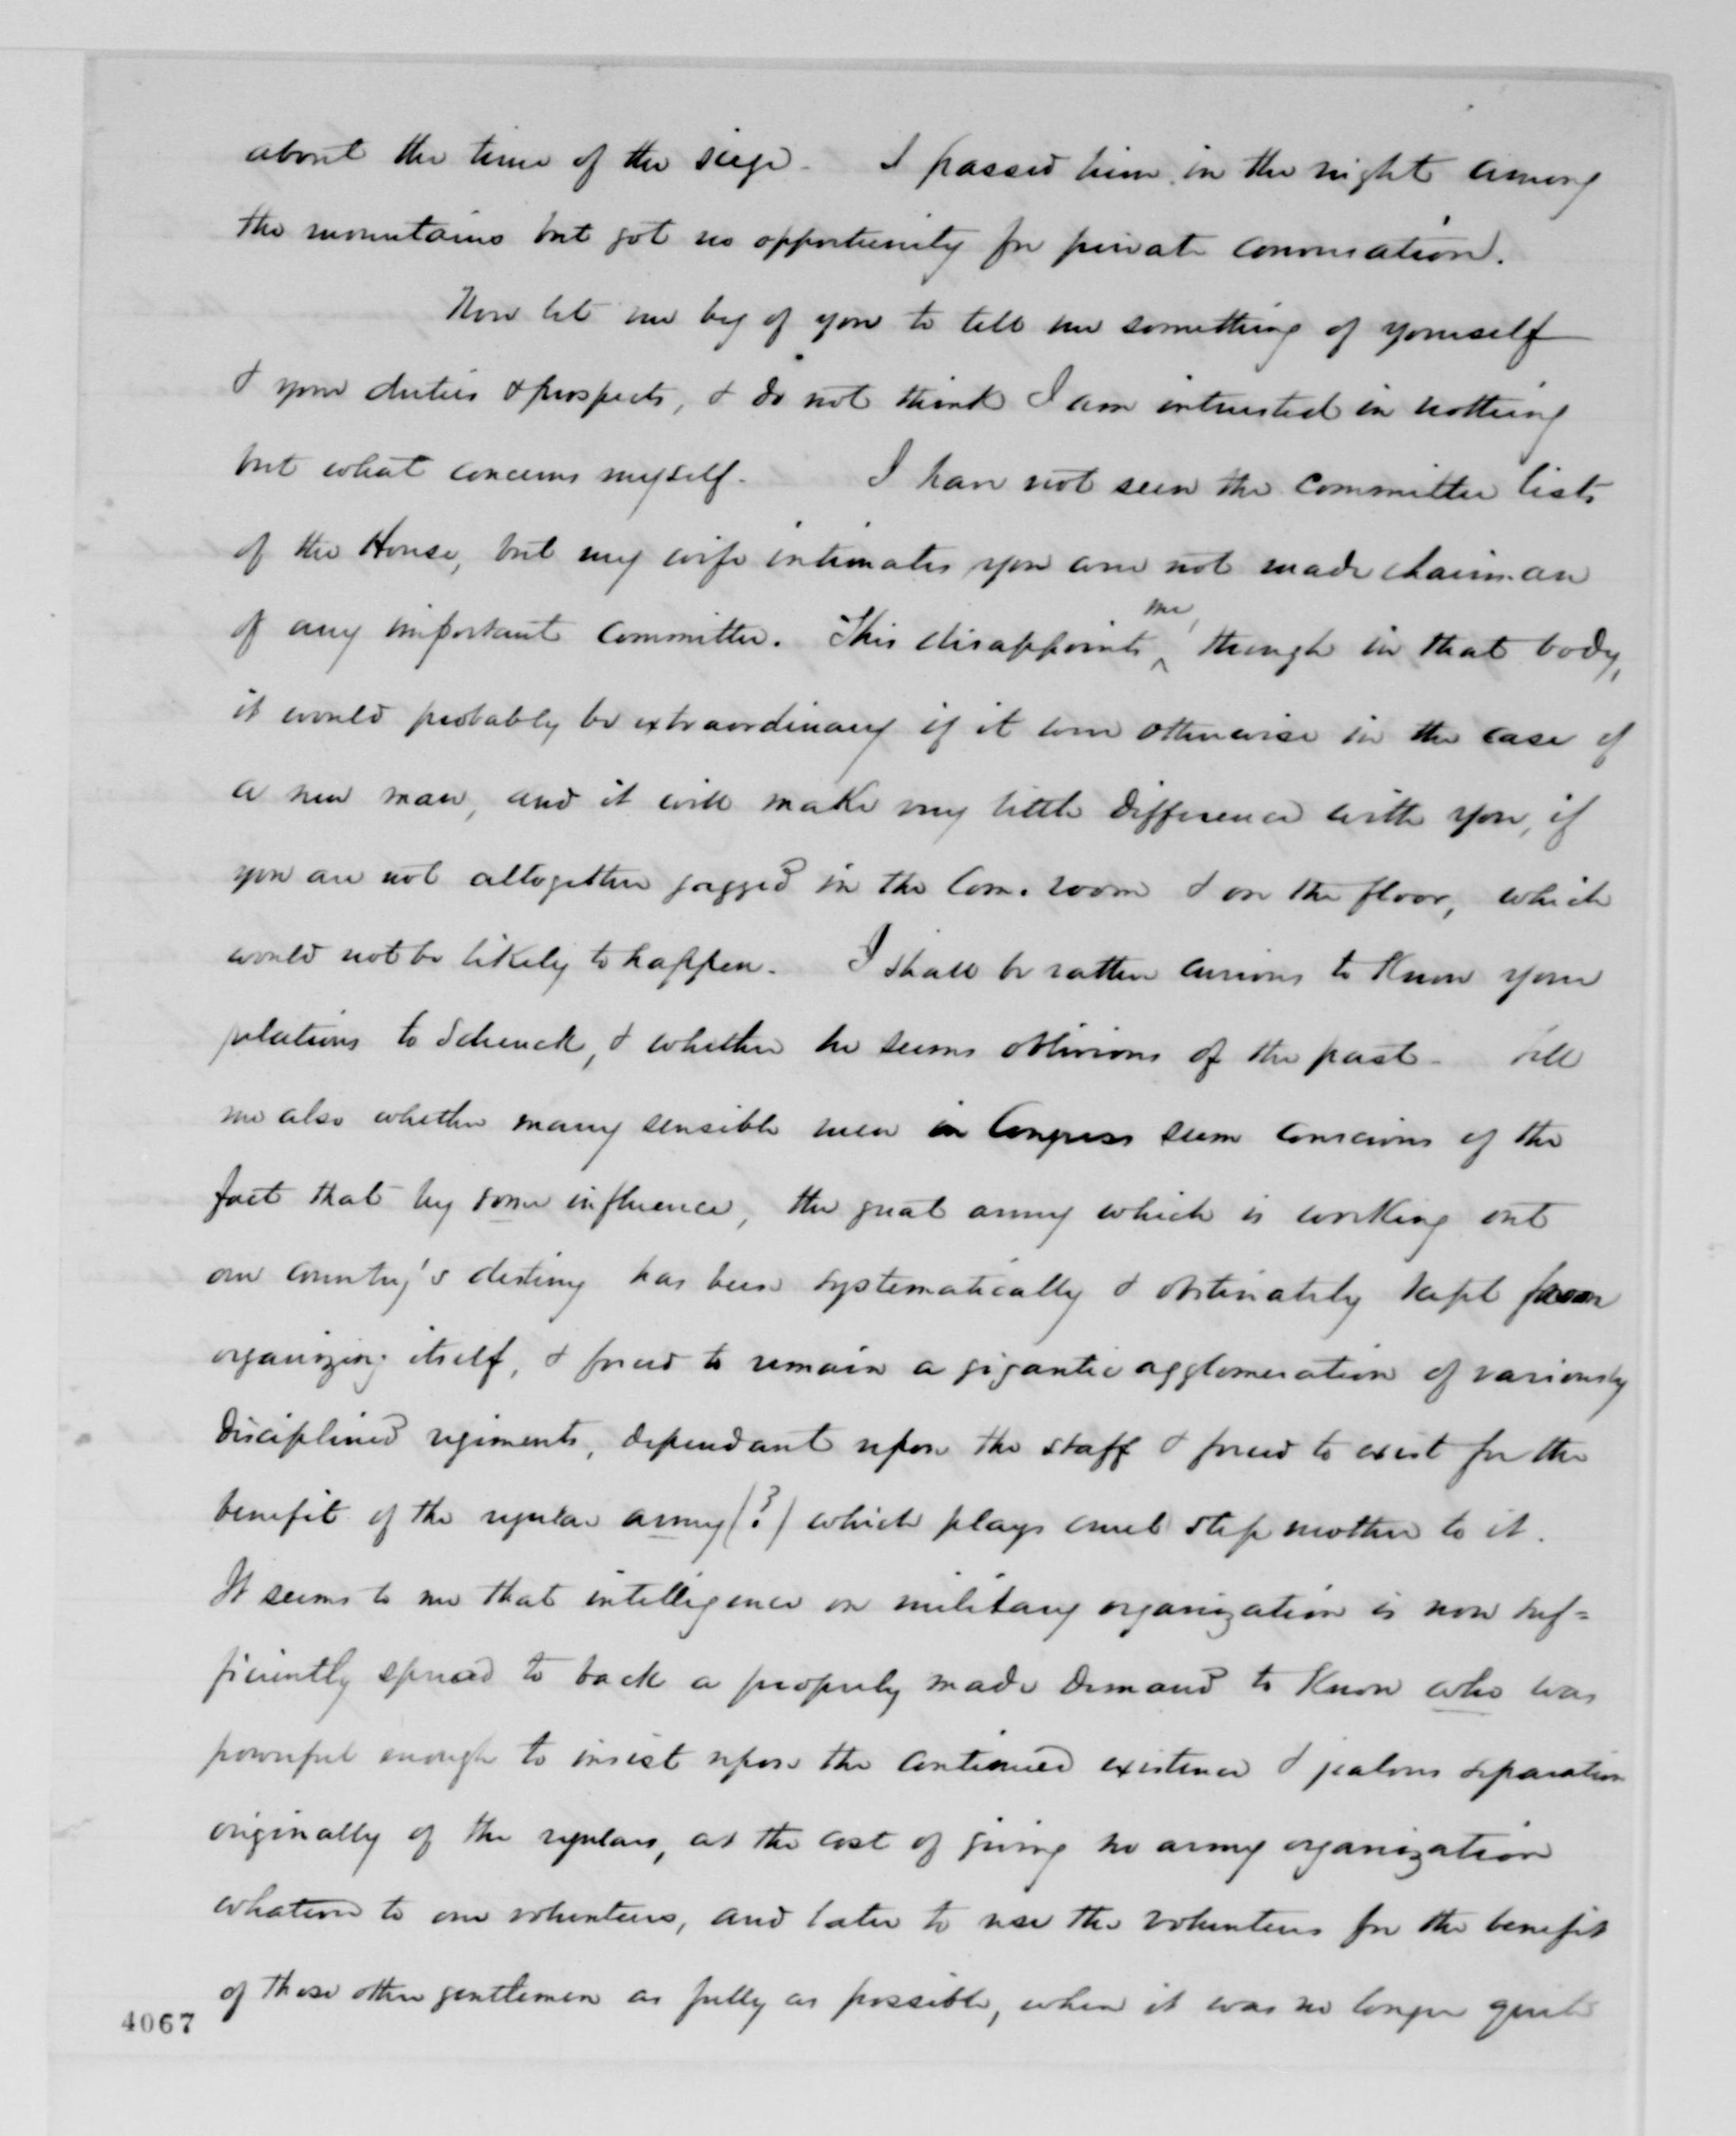 about the time of the siege. I passed him in the night among
the mountains but got no opportunity for private conversation.
Now let me beg of you to tell me something of yourself
& your duties & prospects, & do not think I am interested in nothing
but what concerns myself. I have not seen the committee lists
of the House, but my wife intimates you are not made chairman
of any important committee. This disappoints me, though in that body,
it would probably be extraordinary if it were otherwise in the case of
a new man, and it will make very little difference with you, if
you are not altogether gagged in the Com. room & on the floor, which
would not be likely to happen. I shall be rather curious to know your
relations to Schenck, & whether he seems oblivious of the past. Tell
me also whether many sensible men in Congress seem conscious of the
fact that by some influence, the great army which is working out
our country's destiny has been systematically & obstinately kept from
organizing itself, & forced to remain a gigantic agglomeration of variously
disciplined regiments, dependant upon the staff & forced to exist for the
benefit of the regular army (?) which plays cruel step mother to it.
It seems to me that intelligence on military organization is now suf=
ficiently spread to back a properly made demand to know who was
powerful enough to insist upon the continued existence & jealous separation
originally of the regulars, at the cost of giving no army organization
whatever to our volunteers, and later to use the volunteers for the benefit
of those other gentlemen as fully as possible, when it was no longer quite
4067